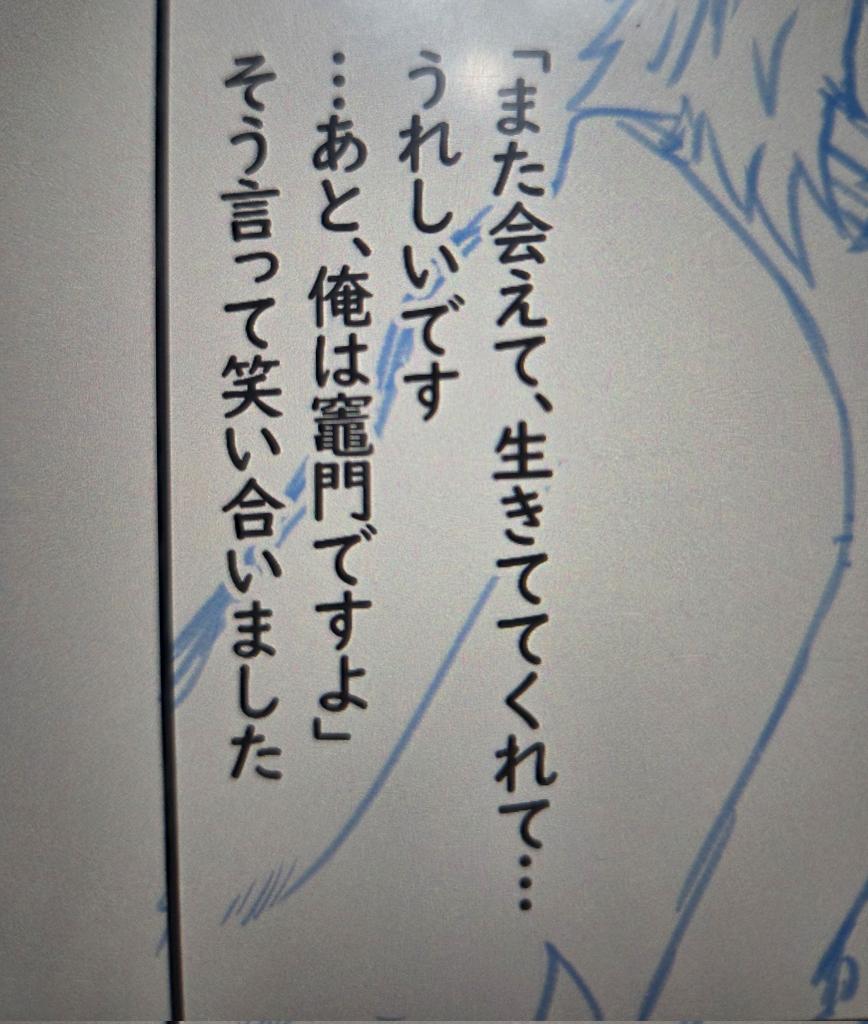 「また会えて、生きててくれて…
うれしいです
…あと、俺は竈門ですよ」
そう言って笑い合いました